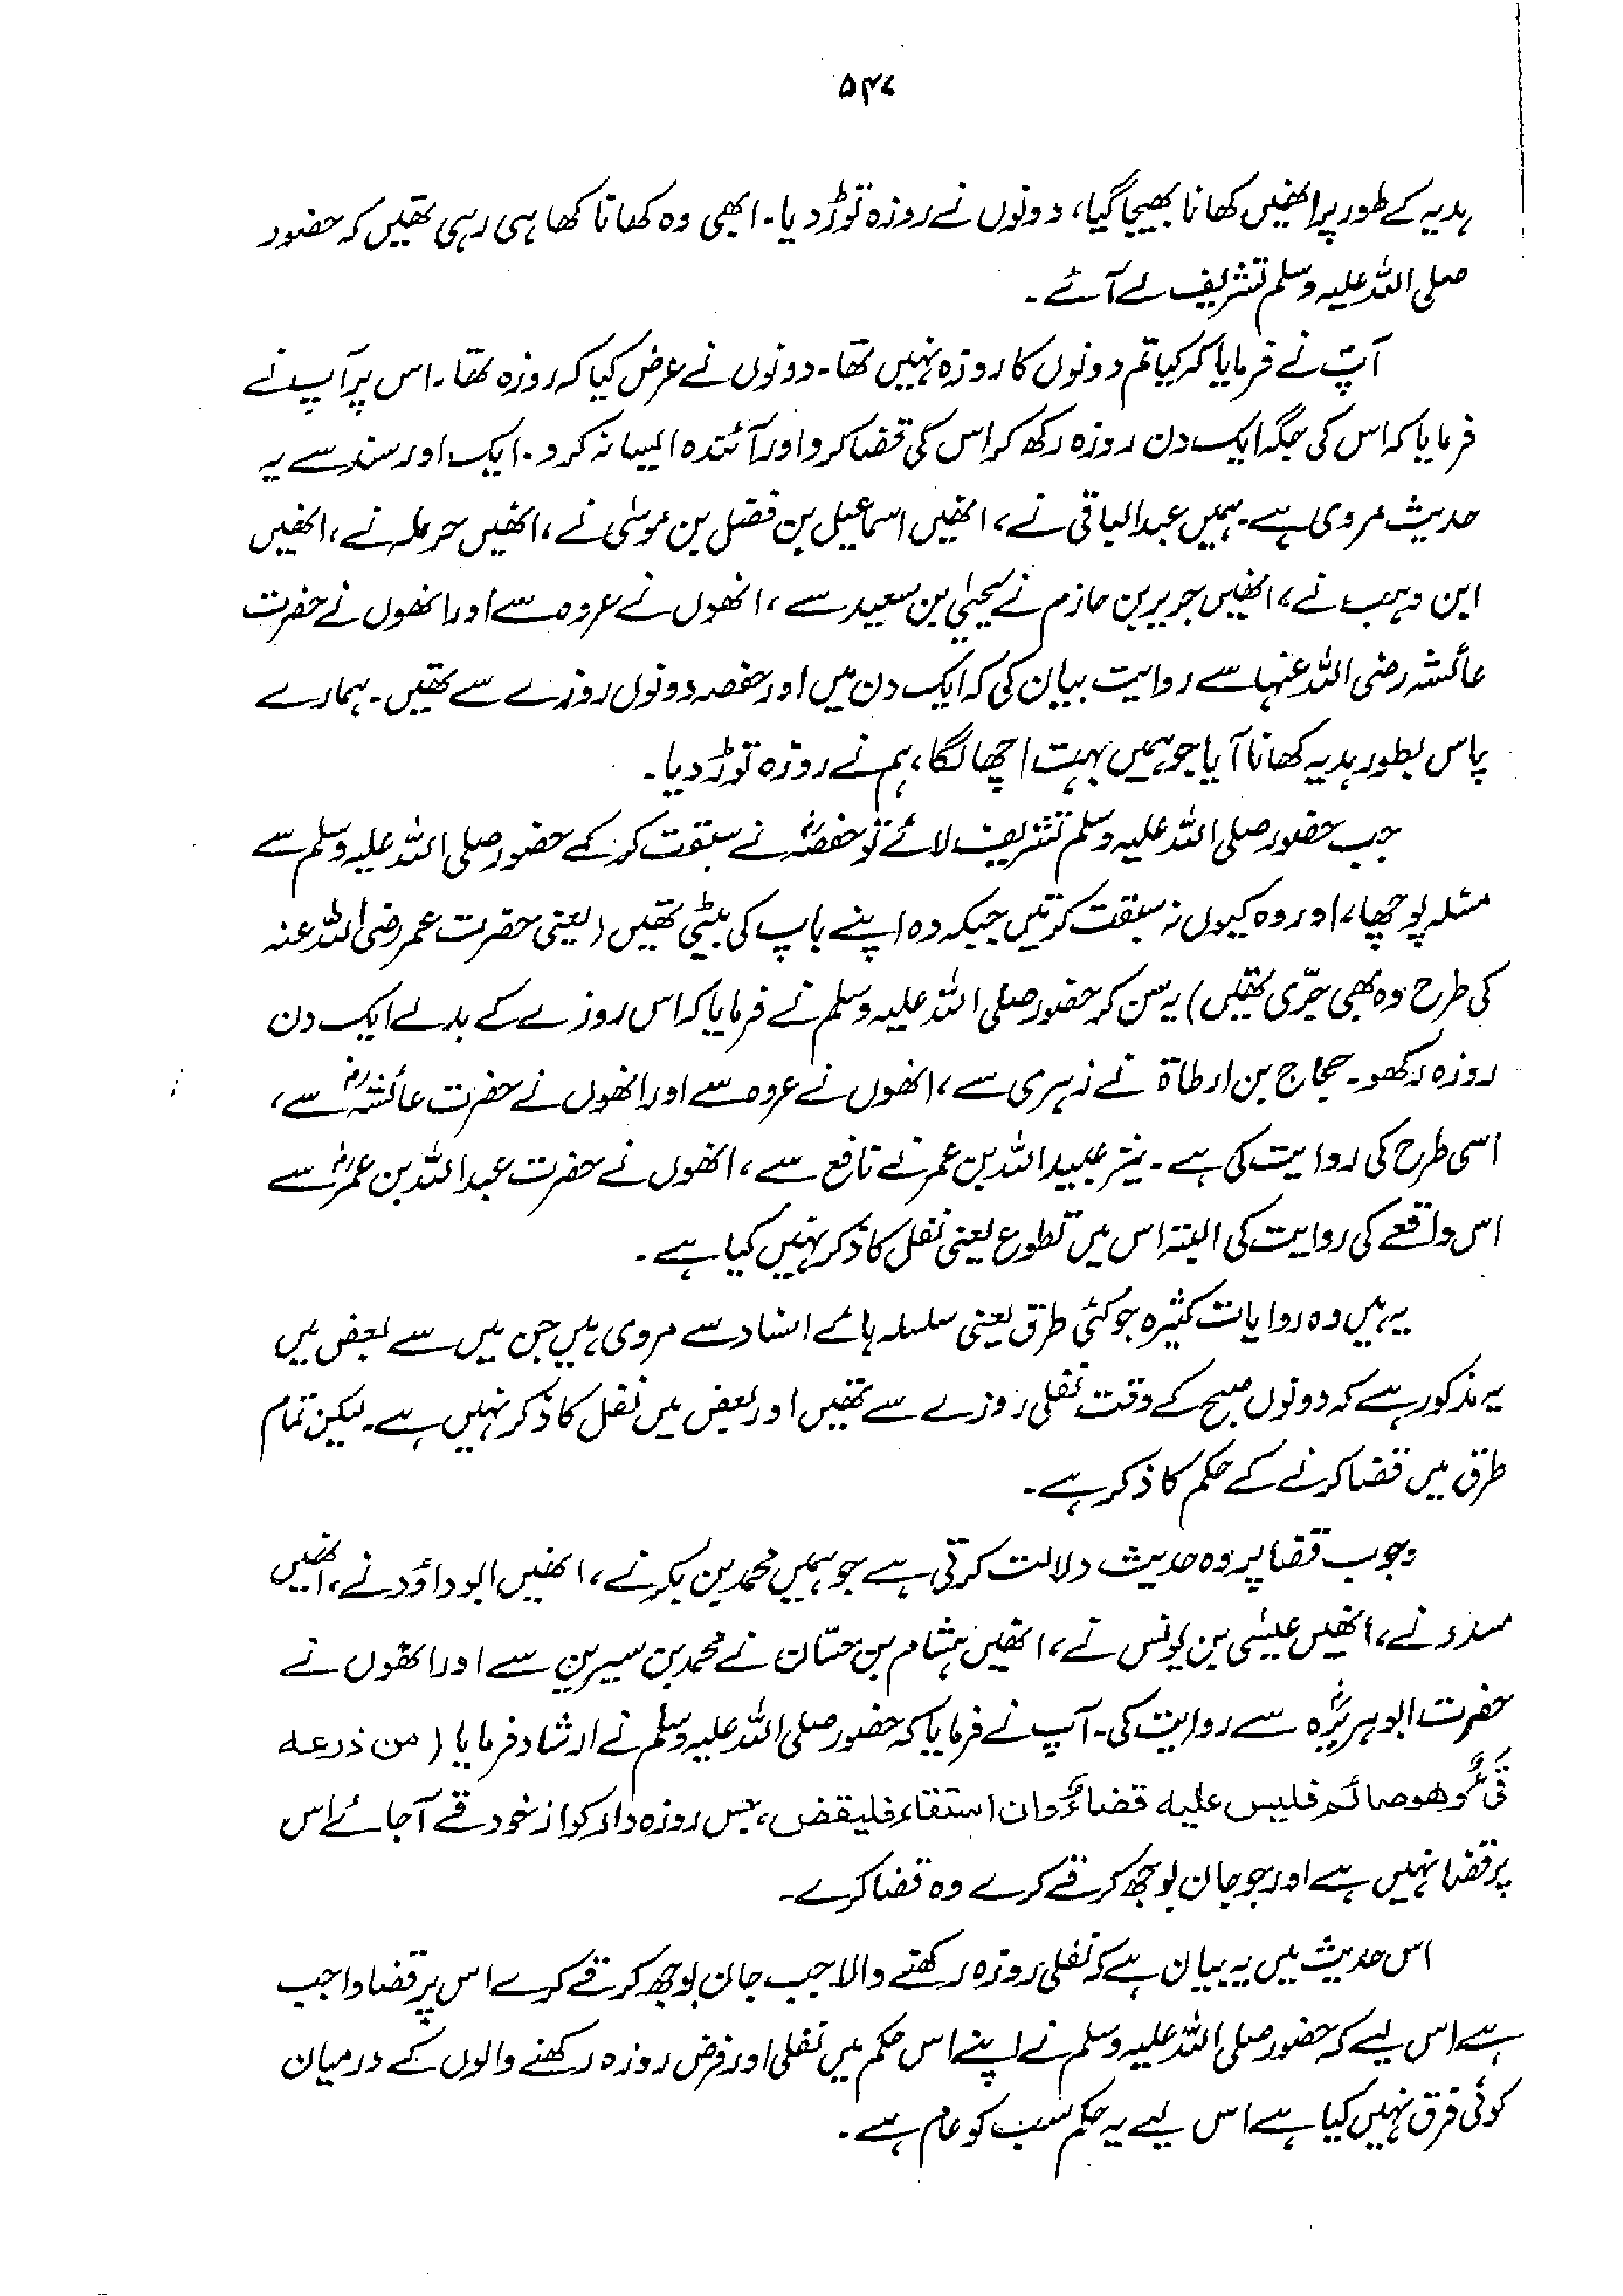 ۵۴۷
ہدیہ کے طور پر انھیں کھانا بھیجا گیا، دونوں نے روزہ توڑ دیا۔ ابھی وہ کھانا کھا ہی رہی تھیں کہ حضور
صلی اللہ علیہ وسلم تشریف لے آئے۔
آپؐ نے فرمایا کہ کیا تم دونوں کا روزہ نہیں تھا۔ دونوں نے عرض کیا کہ روزہ تھا۔ اس پر آپ نے
فرمایا کہ اس کی جگہ ایک دن روزہ رکھ کر اس کی قضا کرو اور آئندہ ایسا نہ کرو۔ ایک اور سند سے یہ
حدیث مروی ہے۔ ہمیں عبدالباقی نے، انھیں اسماعیل بن فضل بن موسٰی نے، انھیں حرملہ نے، انھیں
ابن وہب نے، انھیں جریر بن حازم نے یحییٰ بن سعید سے، انھوں نے عروہ سے اور انھوں نے حضرت
عائشہ رضی اللہ عنہا سے روایت بیان کی کہ ایک دن میں اور حفصہ دونوں روزے سے تھیں۔ ہمارے
پاس بطور ہدیہ کھانا آیا جو ہمیں بہت اچھا لگا، ہم نے روزہ توڑ دیا۔
جب حضور صلی اللہ علیہ وسلم تشریف لائے تو حفصہؓ نے سبقت کر کے حضور صلی اللہ علیہ وسلم سے
مسئلہ پوچھا، اور وہ کیوں نہ سبقت کرتیں جبکہ وہ اپنے باپ کی بیٹی تھیں (یعنی حضرت عمر رضی اللہ عنہ
کی طرح وہ بھی جرّی تھیں) یہ سن کر حضور صلی اللہ علیہ وسلم نے فرمایا کہ اس روزے کے بدلے ایک دن
روزہ رکھو۔ حجاج بن ارطاۃ نے زہری سے، انھوں نے عروہ سے اور انھوں نے حضرت عائشہؓ سے،
اسی طرح کی روایت کی ہے۔ نیز عبیداللہ بن عمر نے نافع سے، انھوں نے حضرت عبداللہ بن عمرؓ سے
اس واقعے کی روایت کی البتہ اس میں تطوع یعنی نفل کا ذکر نہیں کیا ہے۔
یہ ہیں وہ روایات کثیرہ جو کئی طرق یعنی سلسلہ ہائے اسناد سے مروی ہیں جن میں سے بعض میں
یہ مذکور ہے کہ دونوں صبح کے وقت نفلی روزے سے تھیں اور بعض میں نفل کا ذکر نہیں ہے۔ لیکن تمام
طرق میں قضا کرنے کے حکم کا ذکر ہے۔
وجوب قضا پر وہ حدیث دلالت کرتی ہے جو ہمیں محمد بن بکر نے، انھیں ابو داؤد نے، انھیں
مسدد نے، انھیں عیسٰی بن یونس نے، انھیں ہشام بن حسّان نے محمد بن سیرین سے اور انھوں نے
حضرت ابوہریرہؓ سے روایت کی۔ آپ نے فرمایا کہ حضور صلی اللہ علیہ وسلم نے ارشاد فرمایا (من ذرعہ
قیءٌ وھو صائم فلیس علیہ قضاءٌ وان استقاء فلیقض، جس روزہ دار کو از خود قے آجائے اس
پر قضا نہیں ہے اور جو جان بوجھ کر قے کرے وہ قضا کرے۔
اس حدیث میں یہ بیان ہے کہ نفلی روزہ رکھنے والا جب جان بوجھ کر قے کرے اس پر قضا واجب
ہے اس لیے کہ حضور صلی اللہ علیہ وسلم نے اپنے اس حکم میں نفلی اور فرض روزہ رکھنے والوں کے درمیان
کوئی فرق نہیں کیا ہے اس لیے یہ حکم سب کو عام ہے۔